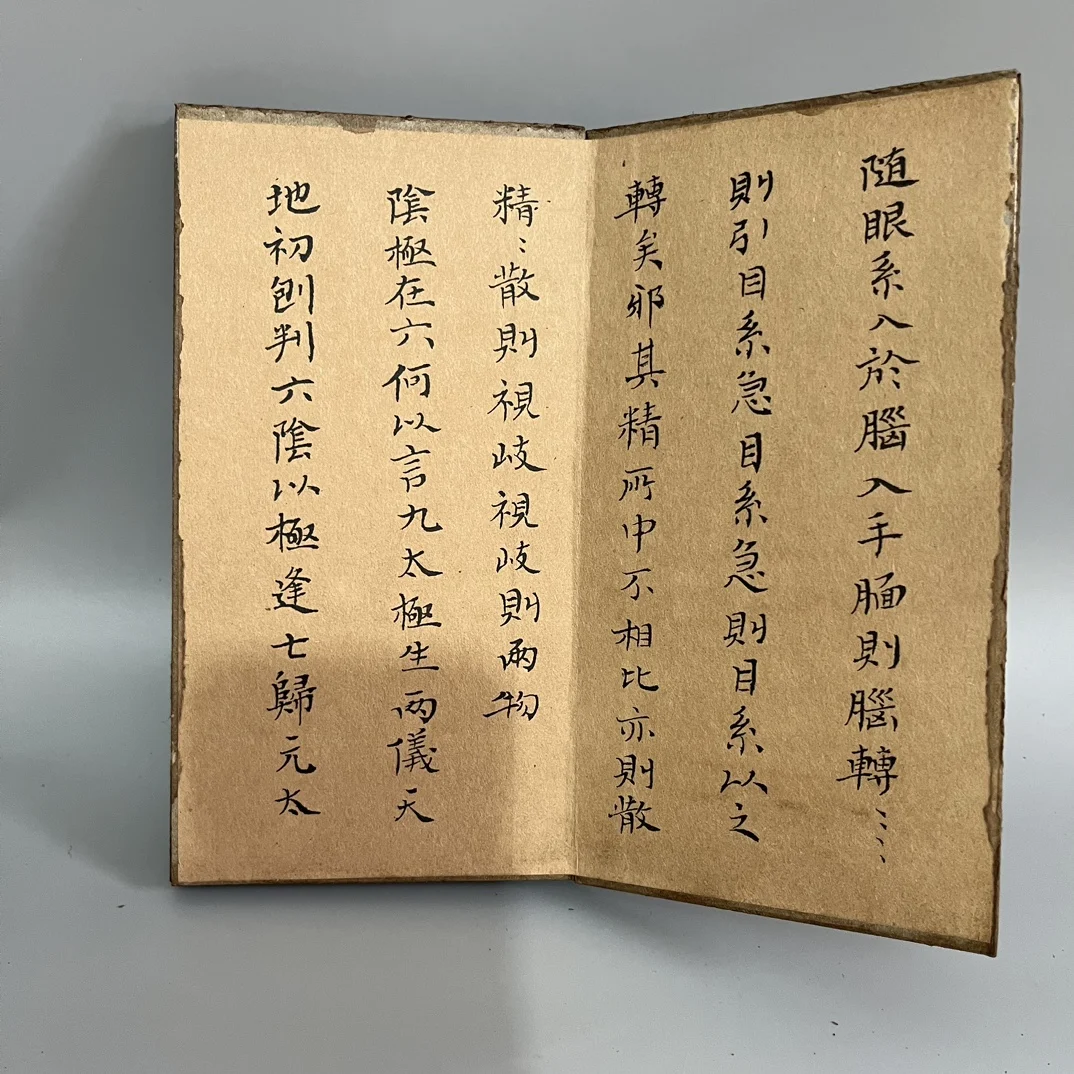 随眼系入於腦入手腼則腦轉〻
則引目系急目系急則目系以之
轉矣邪其精所中不相比亦則散
精〻散則視岐視岐則兩物
陰極在六何以言九太極生兩儀天
地初刨判六陰以極逢七歸元太